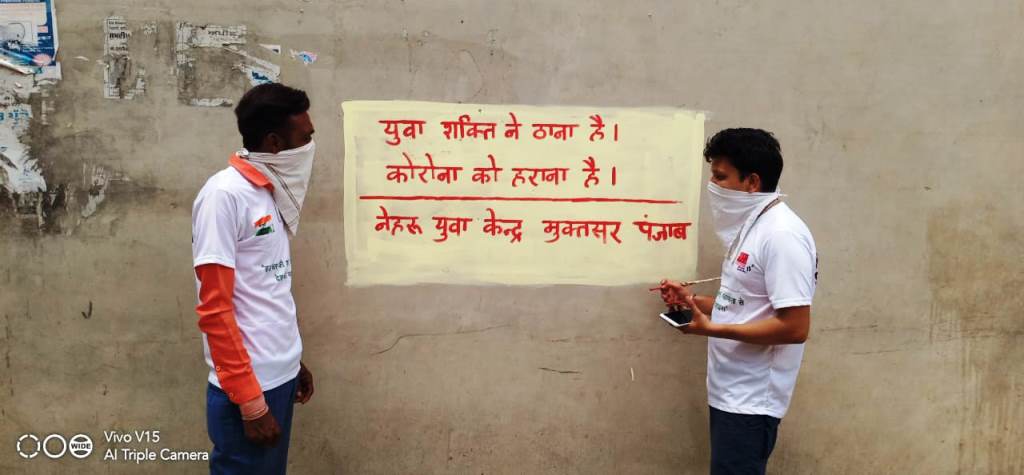 युवा शक्ति ने ठाना है।
कोरोना को हराना है।
नेहरू युवा केन्द्र मुक्तसर पंजाब
WIDE
Vivo V15
AI Triple Camera